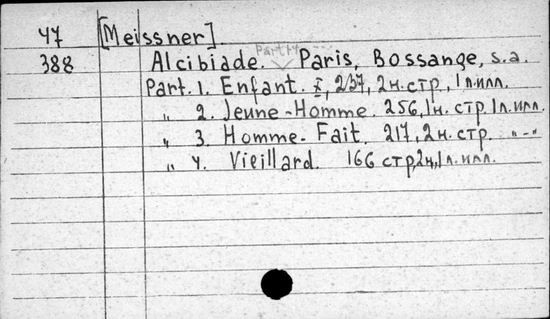 47 [Meissner]
388 Alcibiade. Part 1-4 Paris, Bossange, s.a.
Part. 1. Enfant. X, 237, 2н.стр., 1 л.илл.
" 2. Jeune-Homme. 256, 1н. стр 1 л.илл.
" 3. Homme-Fait. 217, 2н. стр. " - "
" 4. Vieillard. 166 стр, 2н, 1 л. илл.